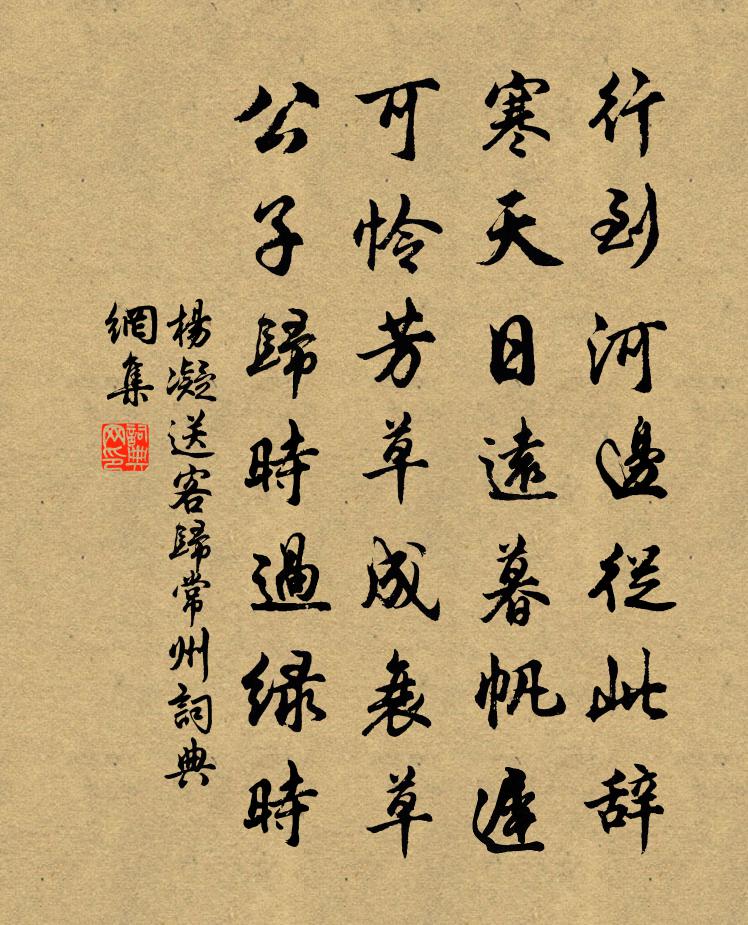 行到河邊從此辞
寒天日遠暮帆遲
可怜芳草成衰草
公子歸時過緑時
楊凝送客歸常州詞典
網集
詞典網印